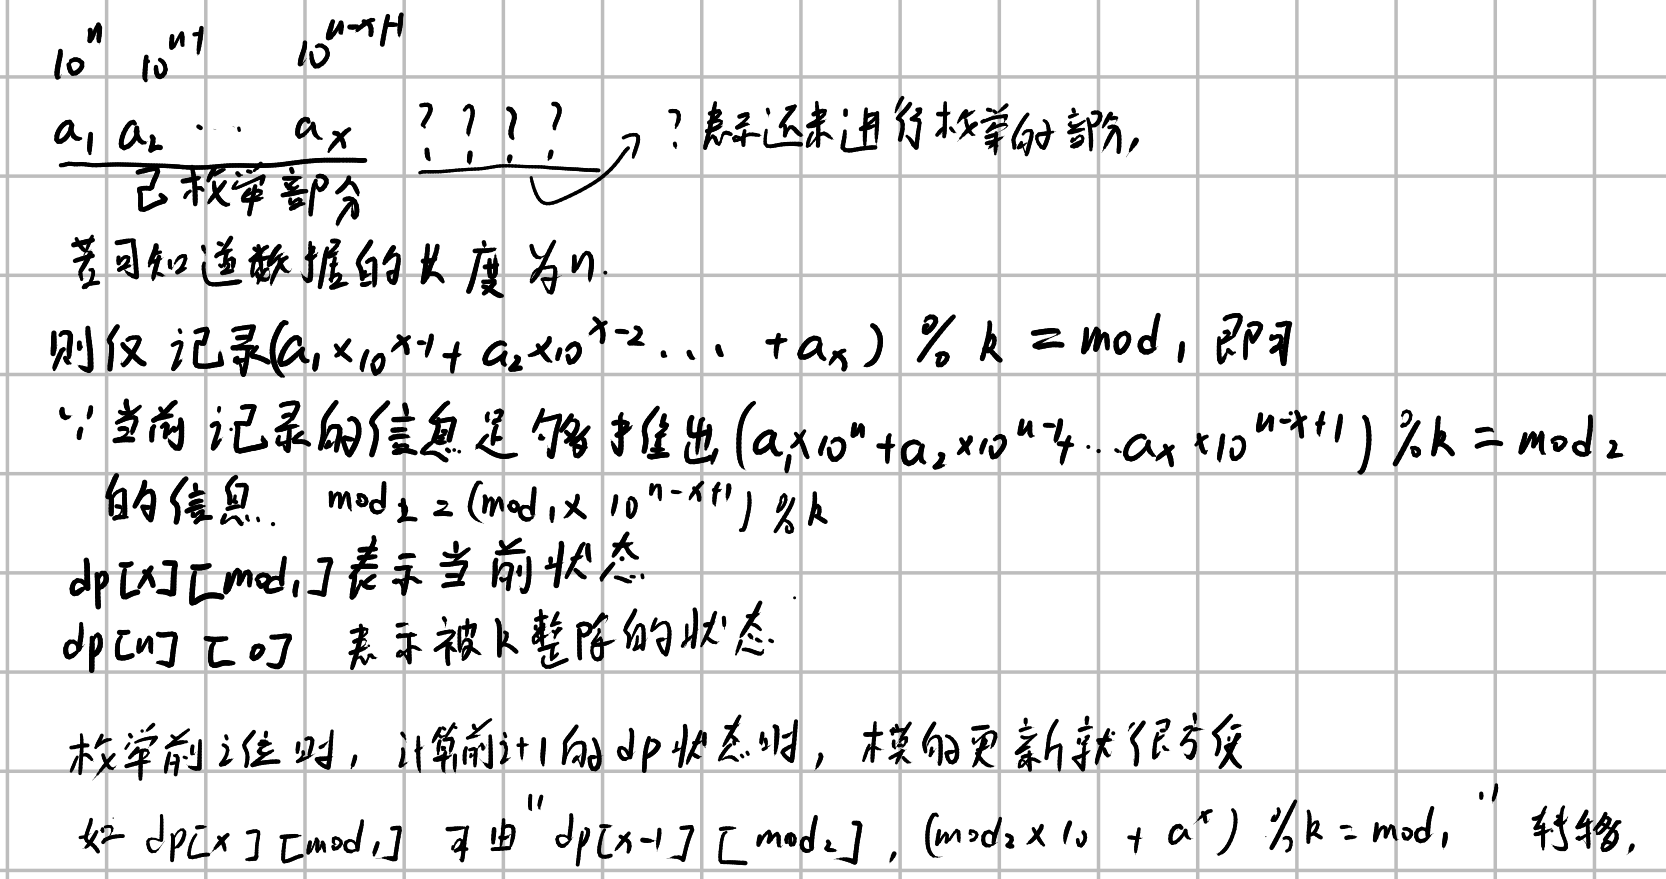 10^n 10^{n-1} 10^{n-x+1}
a₁ a₂ ... aₓ ? ? ? ? ?表示还未进行枚举的部分,
已枚举部分
若可知道数据的长度为n.
则仅记录(a₁×10^{x-1}+a₂×10^{x-2}...+aₓ) % k = mod₁ 即可
∵当前记录的信息足够推出(a₁×10^n+a₂×10^{n-1}...aₓ×10^{n-x+1}) % k = mod₂
的信息. mod₂=(mod₁×10^{n-x+1}) % k
dp[x][mod₁]表示当前状态.
dp[n][0] 表示被k整除的状态.
枚举前i位时, 计算前i+1的dp状态时, 模的更新就很方便
如 dp[x][mod₁] 可由"dp[x-1][mod₂], (mod₂×10+a^x) % k = mod₁" 转移.